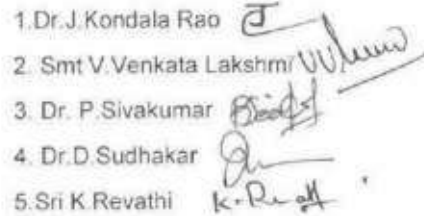 1.Dr.J.Kondala Rao
2. Smt V.Venkata Lakshmi
3. Dr. P.Sivakumar
4. Dr.D.Sudhakar
5.Sri K.Revathi K.Revathi